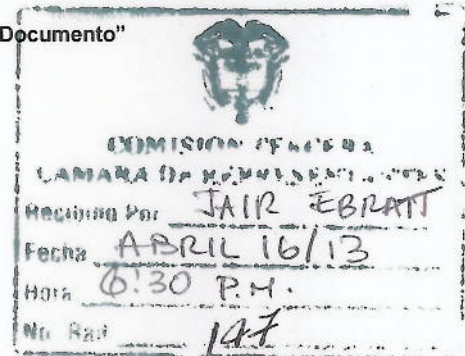 Documento”
COMISION TERCERA
CAMARA DE REPRESENTANTES
Recibido Por JAIR EBRATT
Fecha ABRIL 16/13
Hora 6:30 P.M.
No. Rad. 147